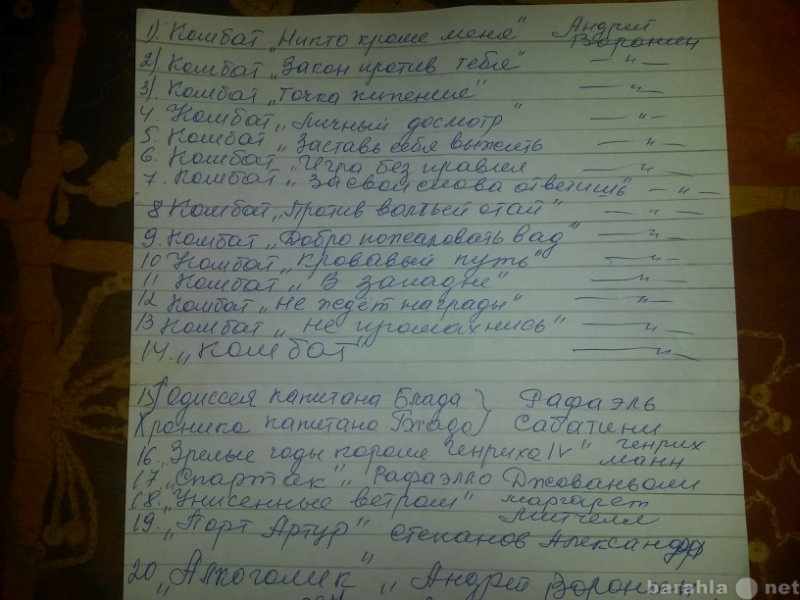 1). Комбат „Никто кроме меня" Андрей
Воронин
2). Комбат „Закон против тебя" — „ —
3). Комбат „Точка кипения" — „ —
4. Комбат „Личный досмотр" — „ —
5. Комбат „Заставь себя выжить — „ —
6. Комбат „Игра без правил — „ —
7. Комбат „За свои слова ответишь" — „ —
8 Комбат „Против волчьей стаи" — „ —
9. Комбат „Добро пожаловать в ад" — „ —
10 Комбат „Кровавый путь" — „ —
11 Комбат „В западне" — „ —
12 Комбат „Не ждёт награды" — „ —
13 Комбат „Не промахнись" — „ —
14. „Комбат" — „ —
15) Одиссея капитана Блада } Рафаэль
Хроника капитана Блада } Сабатини
16. „Зрелые годы короля Генриха IV" Генрих
Манн
17. „Спартак" „ Рафаэлло Джованьоли
18. „Унисенные ветром" Маргарет
Митчелл
19. „Порт Артур" Степанов Александр
20 „Алкоголик" „ Андрей Воронин
barahla net